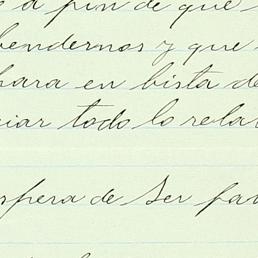 a fin de que
bendernos y que
para en bista de
iar todo lo rela
spera de ser fa